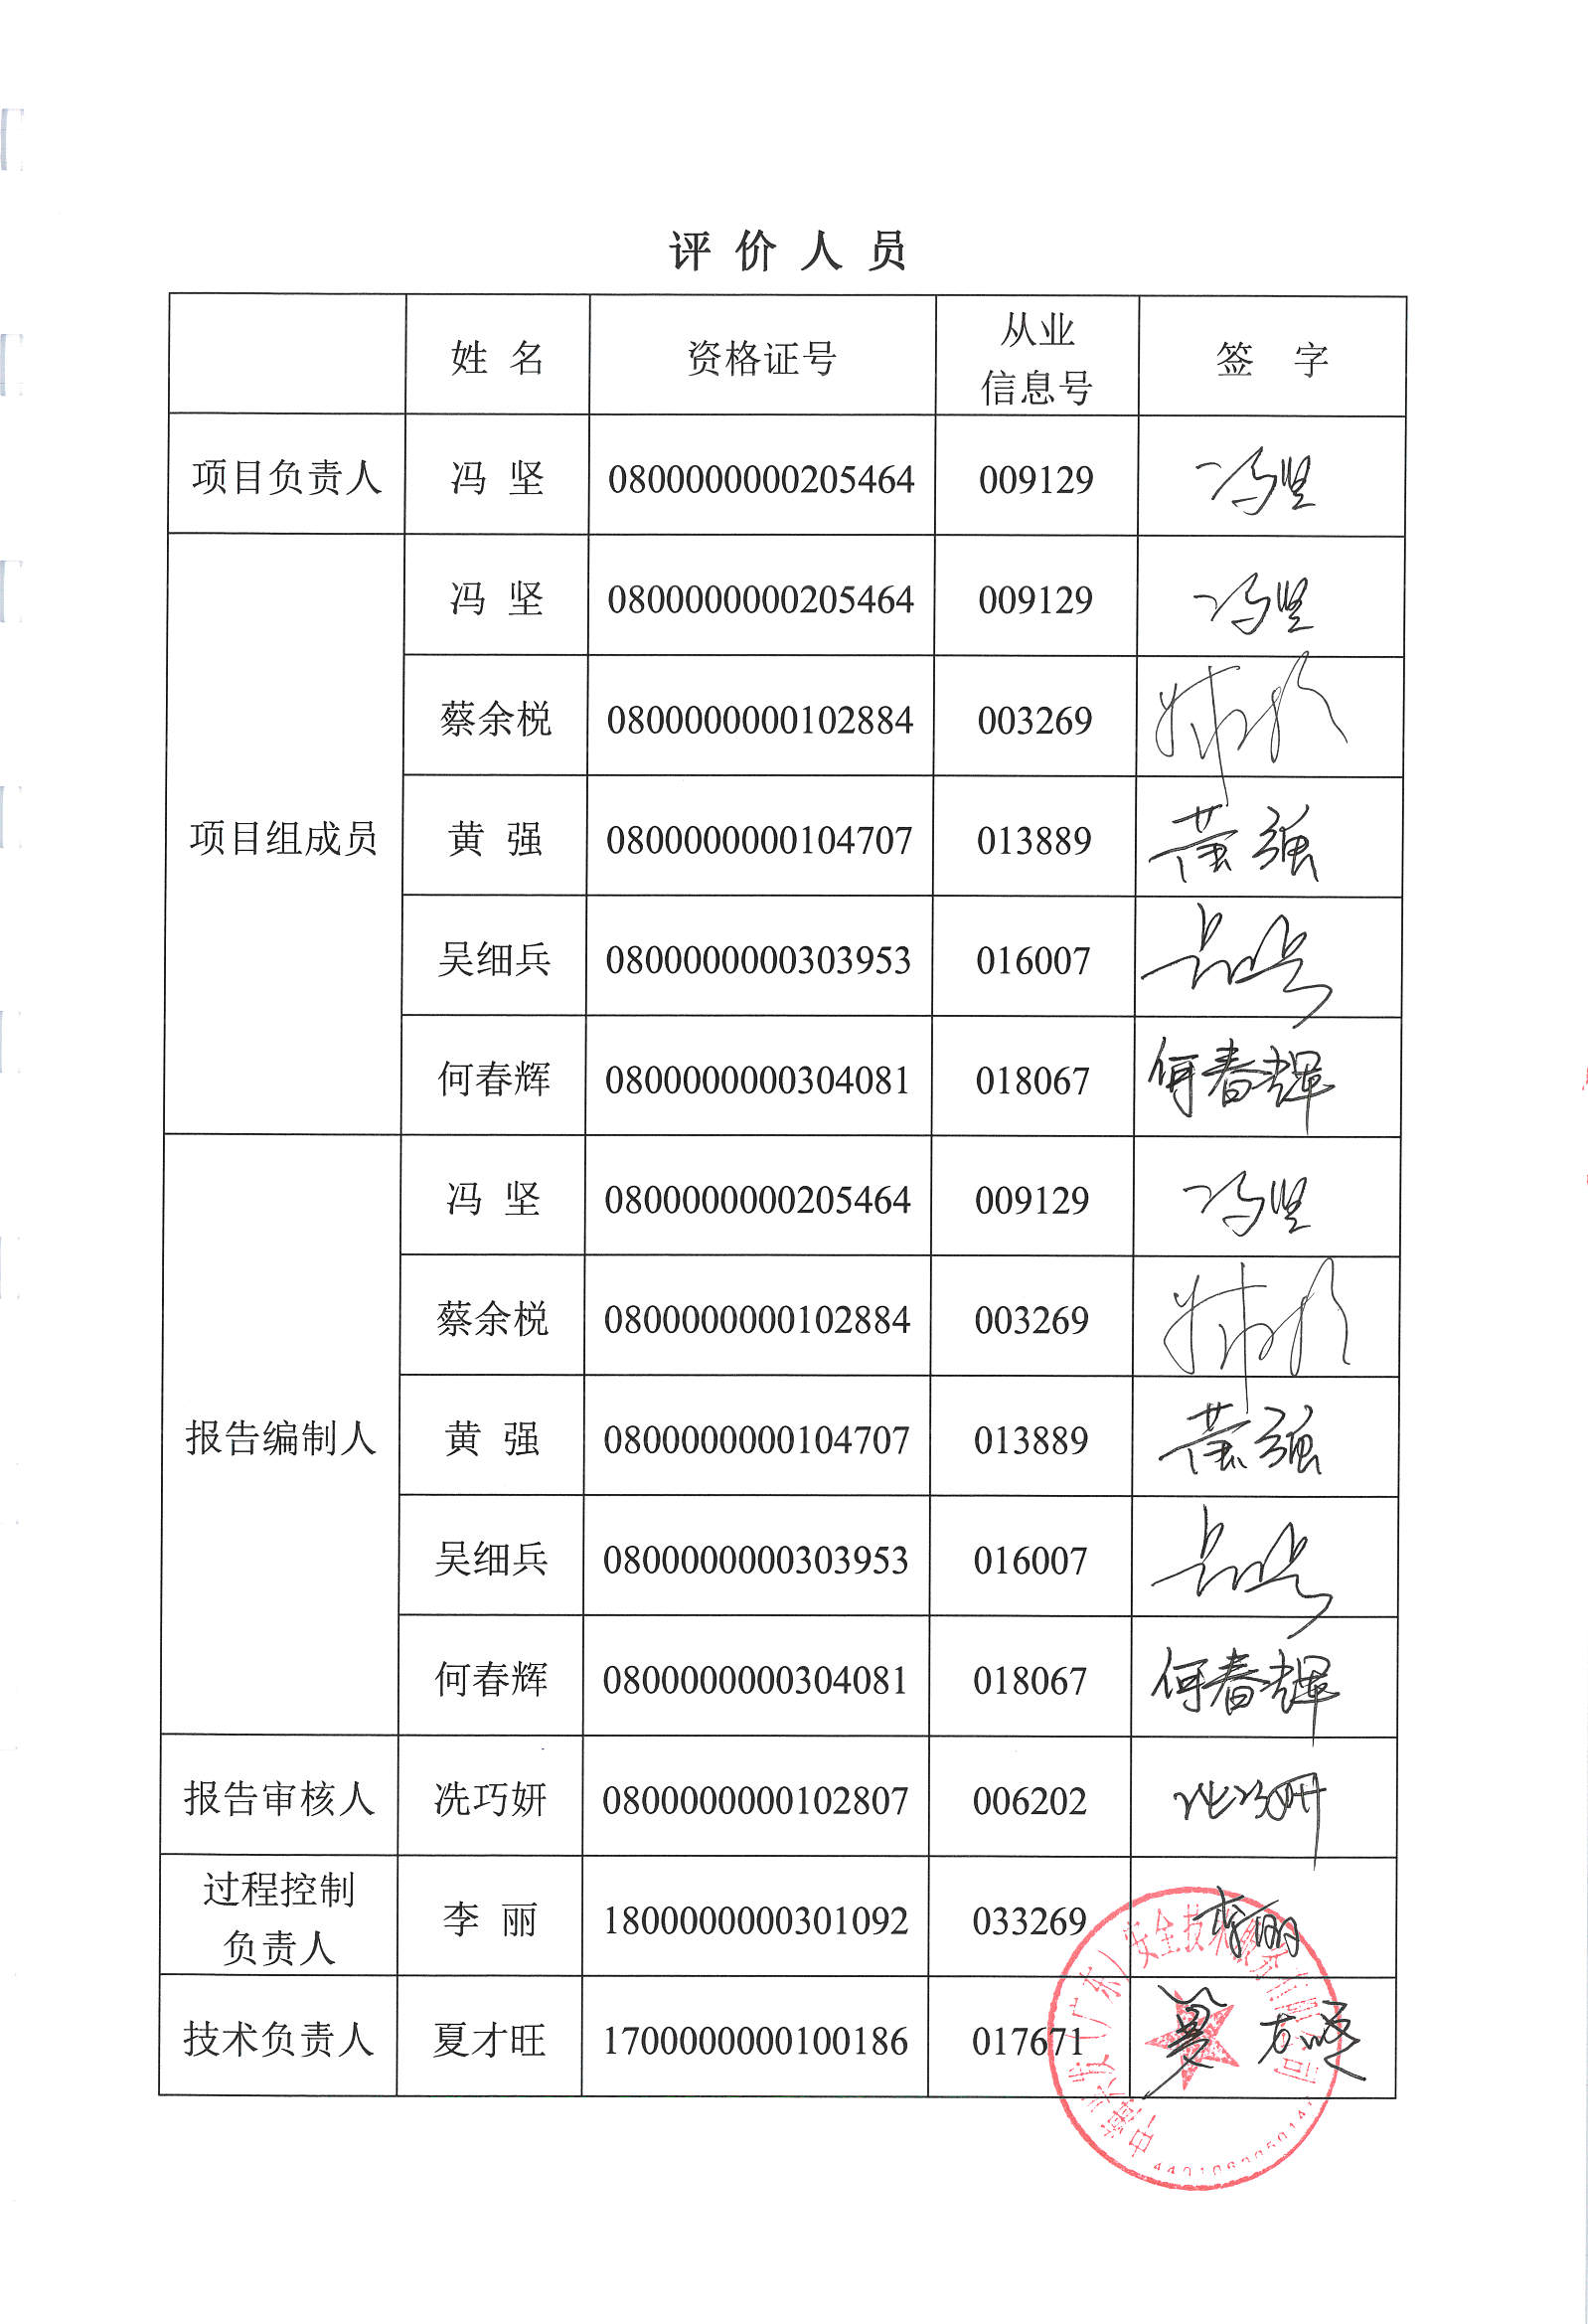 评 价 人 员
姓 名 资格证号 从业 签 字
信息号
项目负责人 冯 坚 0800000000205464 009129 冯坚
项目组成员 冯 坚 0800000000205464 009129 冯坚
蔡余棁 0800000000102884 003269
黄 强 0800000000104707 013889 黄强
吴细兵 0800000000303953 016007
何春辉 0800000000304081 018067 何春辉
报告编制人 冯 坚 0800000000205464 009129 冯坚
蔡余棁 0800000000102884 003269
黄 强 0800000000104707 013889 黄强
吴细兵 0800000000303953 016007
何春辉 0800000000304081 018067 何春辉
报告审核人 冼巧妍 0800000000102807 006202
过程控制
负责人 李 丽 1800000000301092 033269 李丽
技术负责人 夏才旺 1700000000100186 017671 夏才旺
(广东)安全技术服务有限公司